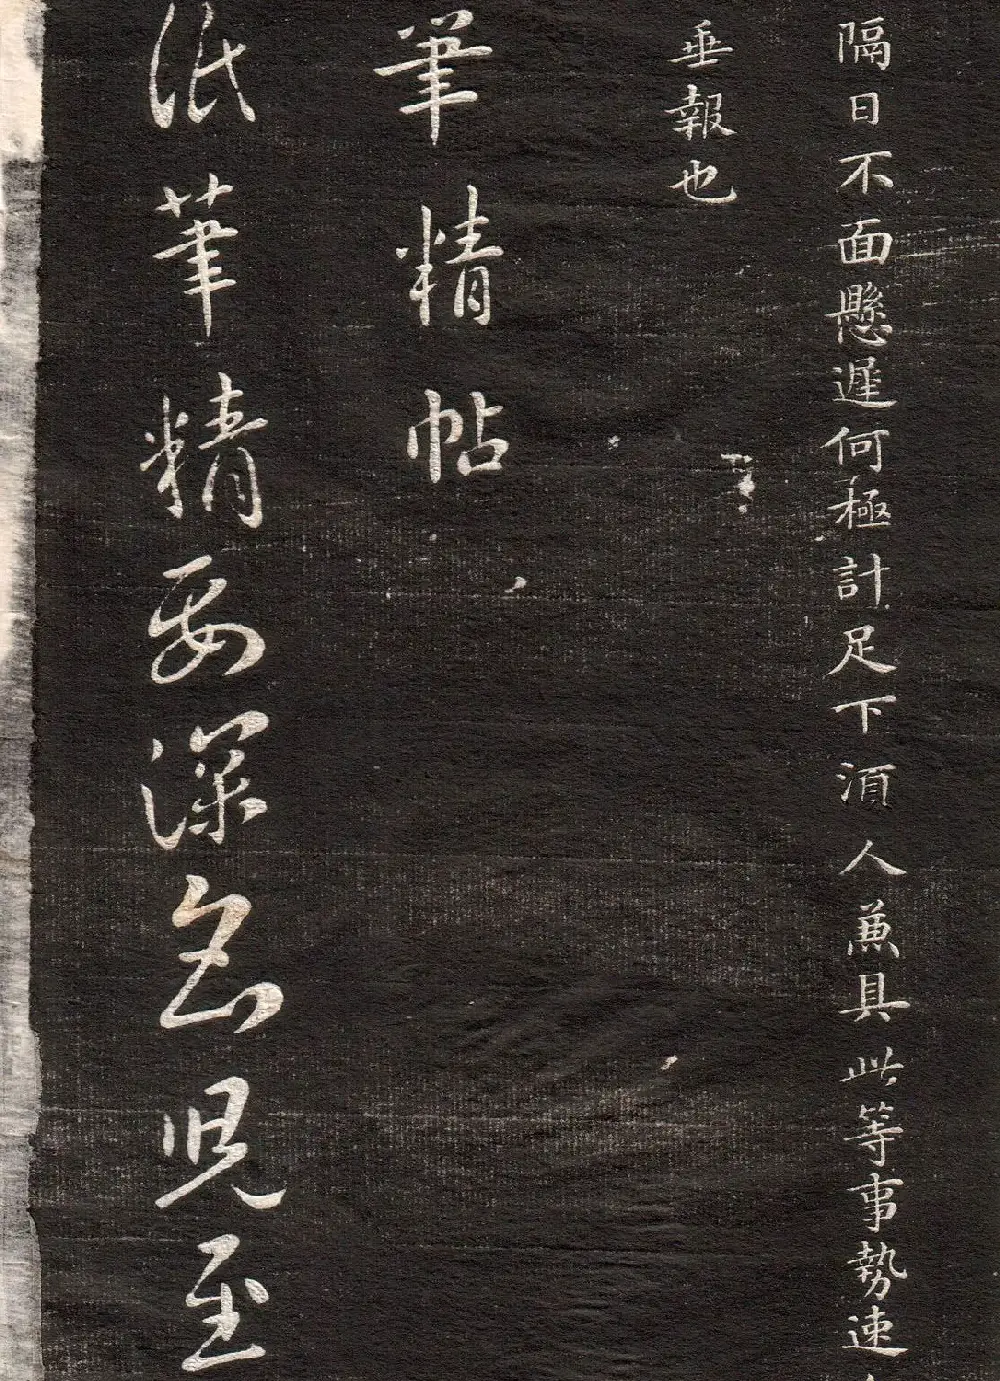 隔日不面懸遲何極計足下湏人蕉具此等事勢速
垂報也
筆精帖
紙筆精要深可
至